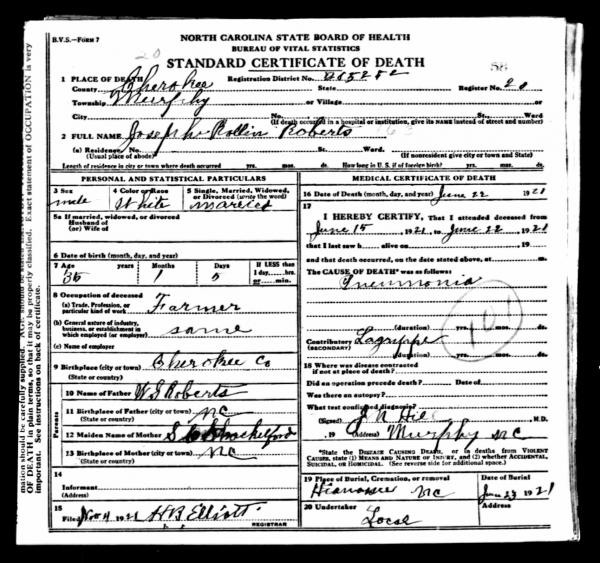 B.V.S.—Form 7
NORTH CAROLINA STATE BOARD OF HEALTH
BUREAU OF VITAL STATISTICS
20
STANDARD CERTIFICATE OF DEATH
58
1 PLACE OF DEATH
County Cherokee Registration District No. Register No. 20
Township Murphy or Village or
City No. St. Ward
(If death occurred in a hospital or institution, give its NAME instead of street and number)
2 FULL NAME Joseph Rollin Roberts 163
(a) Residence. No. St. Ward.
(Usual place of abode) (If nonresident give city or town and State)
Length of residence in city or town where death occurred yrs. mos. ds. How long in U. S. if of foreign birth? yrs. mos. ds.
PERSONAL AND STATISTICAL PARTICULARS
3 Sex
male
4 Color or Race
White
5 Single, Married, Widowed,
or Divorced (write the word)
married
5a If married, widowed, or divorced
Husband of
(or) Wife of
6 Date of birth (month, day, and year)
7 Age years Months Days If LESS than
1 day,....hrs.
or....min.
35 1 5
8 Occupation of deceased
(a) Trade, Profession, or
particular kind of work Farmer
(b) General nature of industry,
business, or establishment in
which employed (or employer) same
(c) Name of employer
9 Birthplace (city or town) Cherokee Co
(State or country)
Parents
10 Name of Father W.S. Roberts
11 Birthplace of Father (city or town) NC
(State or country)
12 Maiden Name of Mother Shackelford
13 Birthplace of Mother (city or town) NC
(State or country)
14
Informant
(Address)
15
Filed Nov 4 1921 H B Elliott
REGISTRAR
MEDICAL CERTIFICATE OF DEATH
16 Date of Death (month, day, and year) June 22 1921
17
I HEREBY CERTIFY, That I attended deceased from
June 15 1921 to June 22 1921
that I last saw h alive on 19
and that death occurred, on the date stated above, at m.
The CAUSE OF DEATH* was as follows:
Pneumonia
(duration) yrs. mos. ds.
101
Contributory Lagrippe
(SECONDARY)
(duration) yrs. mos. ds.
18 Where was disease contracted
if not at place of death?
Did an operation precede death? Date of
Was there an autopsy?
What test confirmed diagnosis?
(Signed) J N Hill M.D.
, 19 (Address) Murphy NC
*State the DISEASE CAUSING DEATH, or in deaths from VIOLENT
CAUSES, state (1) MEANS AND NATURE OF INJURY, and (2) whether ACCIDENTAL,
SUICIDAL, or HOMICIDAL. (See reverse side for additional space.)
19 Place of Burial, Cremation, or removal Date of Burial
Hiawassee NC June 23 1921
20 Undertaker Address
Local
mation should be carefully supplied. AGE should be stated
OF DEATH in plain terms, so that it may be properly classified. Exact statement of OCCUPATION is very
important. See instructions on back of certificate.